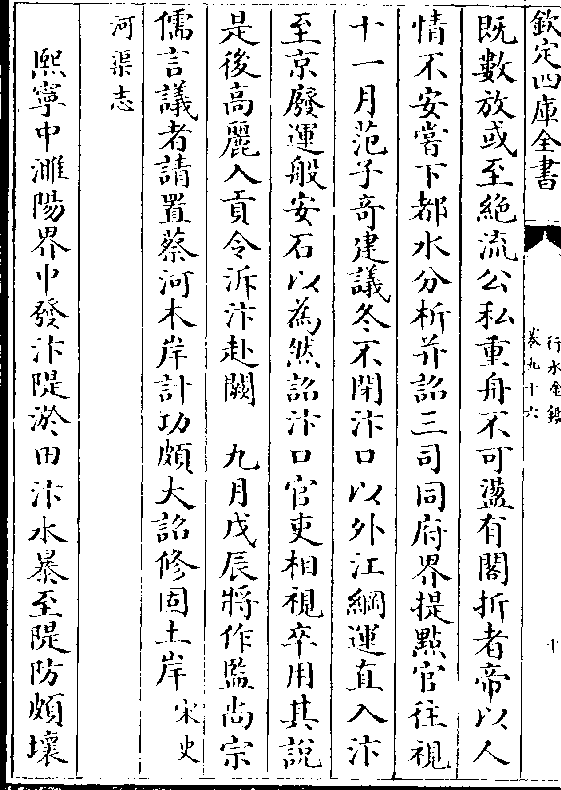 欽定四庫全書
行水金鑑
卷九十六
十
既數放或至絶流公私重舟不可盪有閣折者帝以人
情不安嘗下都水分析并詔三司同府界提點官往視
十一月范子奇建議冬不閉汴口以外江綱運直入汴
至京廢運般安石以為然詔汴口官吏相視卒用其說
是後高麗入貢令泝汴赴闕　九月戊辰將作監尚宗
儒言議者請置蔡河木岸計功頗大詔修固土岸宋史
河渠志
熙寧中濉陽界中發汴隄淤田汴水暴至隄防頗壞